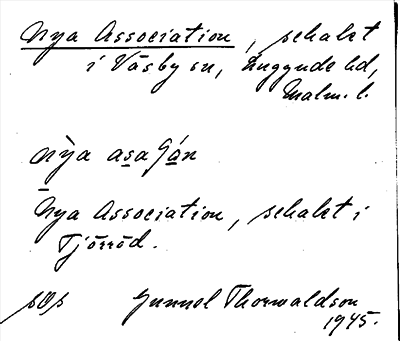 Nya Association, schakt
i Väsby sn, Luggude hd,
Malm. l.
nỳa asaʃán
Nya Association, schakt i
Tjörröd.
Gunnel Thorwaldson
1945.